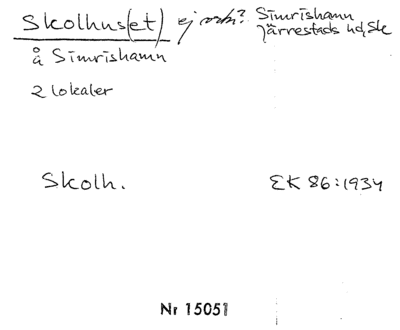 Skolhus(et) ej ortn? Simrishamn
Järrestads hd, Sk
å Simrishamn
2 lokaler
Skolh. EK 86:1934
Nr 15051